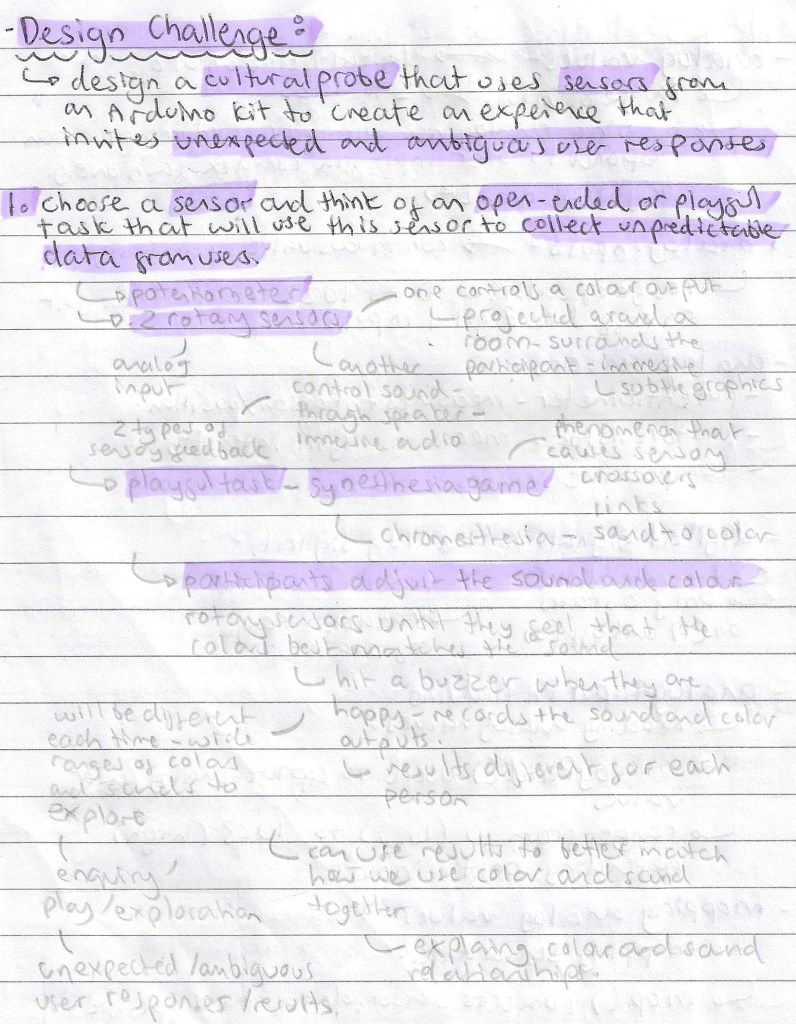 - Design Challenge:
↳ design a cultural probe that uses sensors from
an Arduino kit to create an experience that
invites unexpected and ambiguous user responses
1. choose a sensor and think of an open-ended or playful
task that will use this sensor to collect unpredictable
data from uses.
↳ potentiometer
↳ 2 rotary sensors
one controls a colour output
projected around a
room - surrounds the
participant - immersive
subtle graphics
analog
input
another
control sound -
through speaker -
immersive audio
2 types of
sensory feedback
↳ playful task - synesthesia game
phenomenon that
causes sensory
crossovers
links
chromesthesia - sound to color
↳ participants adjust the sound and colour
rotary sensors until they feel that the
colour best matches the sound
hit a buzzer when they are
happy - records the sound and color
outputs.
results different for each
person
will be different
each time - wide
ranges of colours
and sounds to
explore
enquiry/
play/exploration
unexpected/ambiguous
user responses/results.
can use results to better match
how we use color and sound
together
explaing color and sound
relationships.